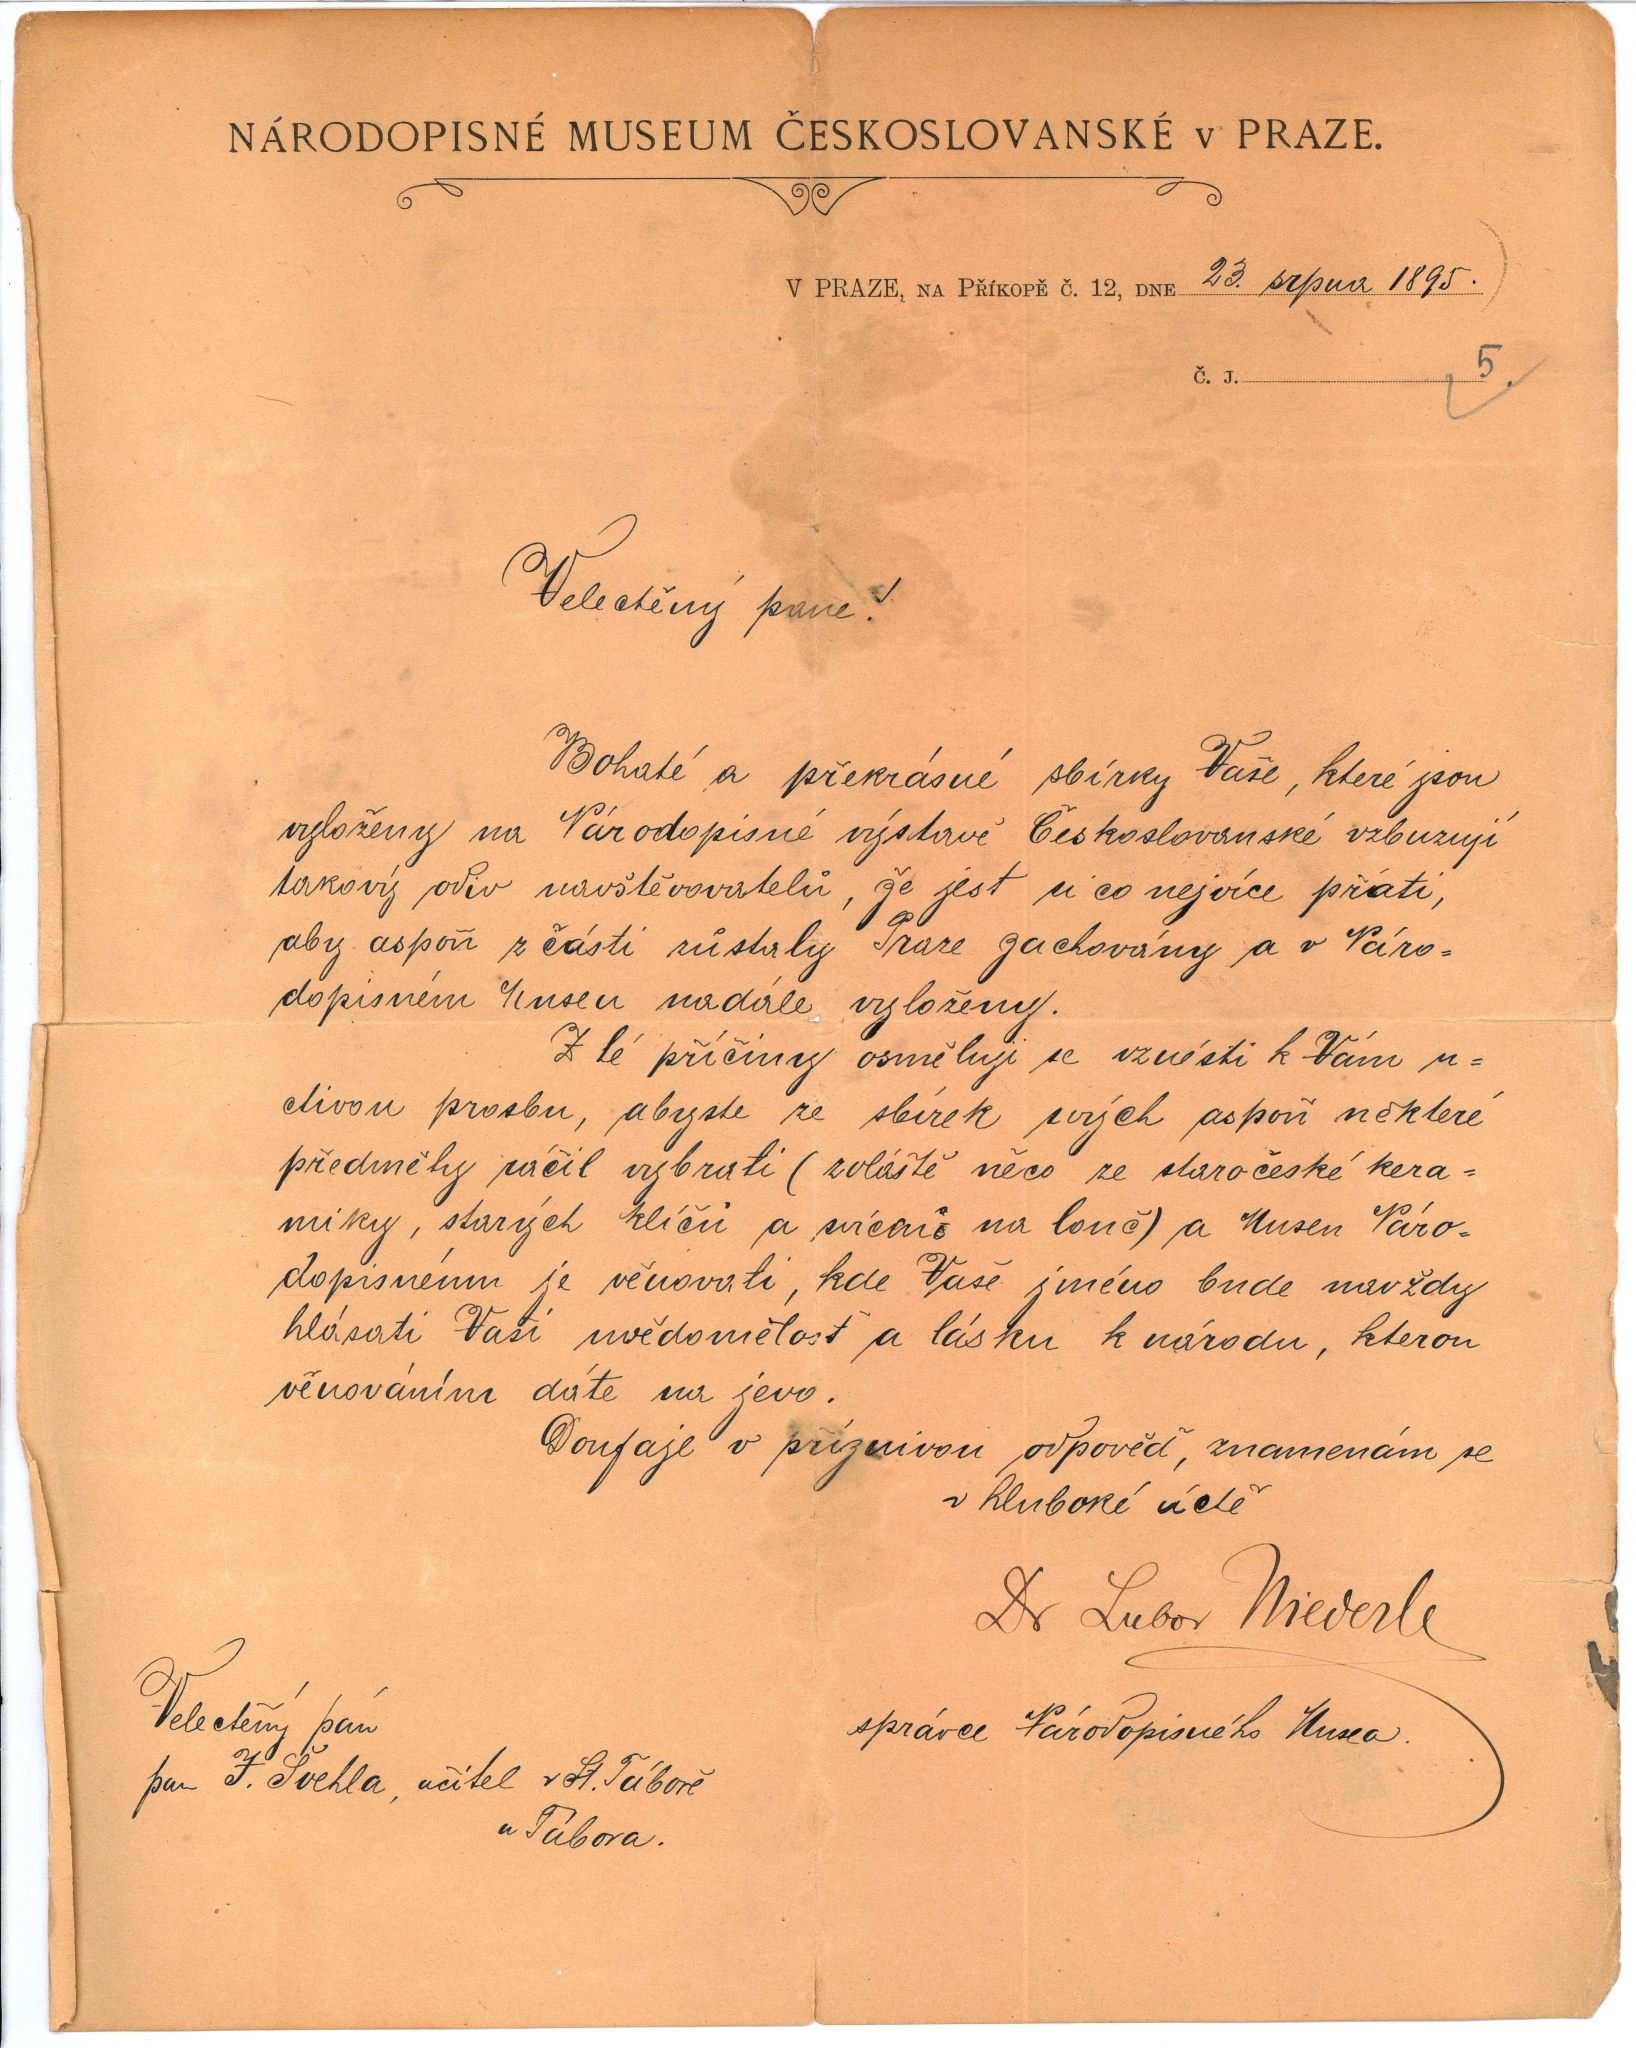 NÁRODOPISNÉ MUSEUM ČESKOSLOVANSKÉ v PRAZE.
V PRAZE, NA PŘÍKOPĚ Č. 12, DNE 23. srpna 1895.
Č. J. 5.
Velectěný pane!
Bohaté a překrásné sbírky Vaše, které jsou
vyloženy na Národopisné výstavě Českoslovanské vzbuzují
takový odiv navštěvovatelů, že jest si co nejvíce přáti,
aby aspoň z části zůstaly Praze zachovány a v Náro=
dopisném Museu nadále vyloženy.
Z té příčiny osměluji se vznésti k Vám u=
ctivou prosbu, abyste ze sbírek svých aspoň některé
předměty ráčil vybrati (zvláště něco ze staročeské kera=
miky, starých klíčů a svícnů na louč) a Museu Náro=
dopisnému je věnovati, kde Vaše jméno bude navždy
hlásati Vaši uvědomělosť a lásku k národu, kterou
věnováním dáte na jevo.
Doufaje v příznivou odpověď, znamenám se
v hluboké úctě
Dr Lubor Niederle
správce Národopisného Musea.
Velectěný pán
pan J. Švehla, učitel v St. Táboře
u Tábora.